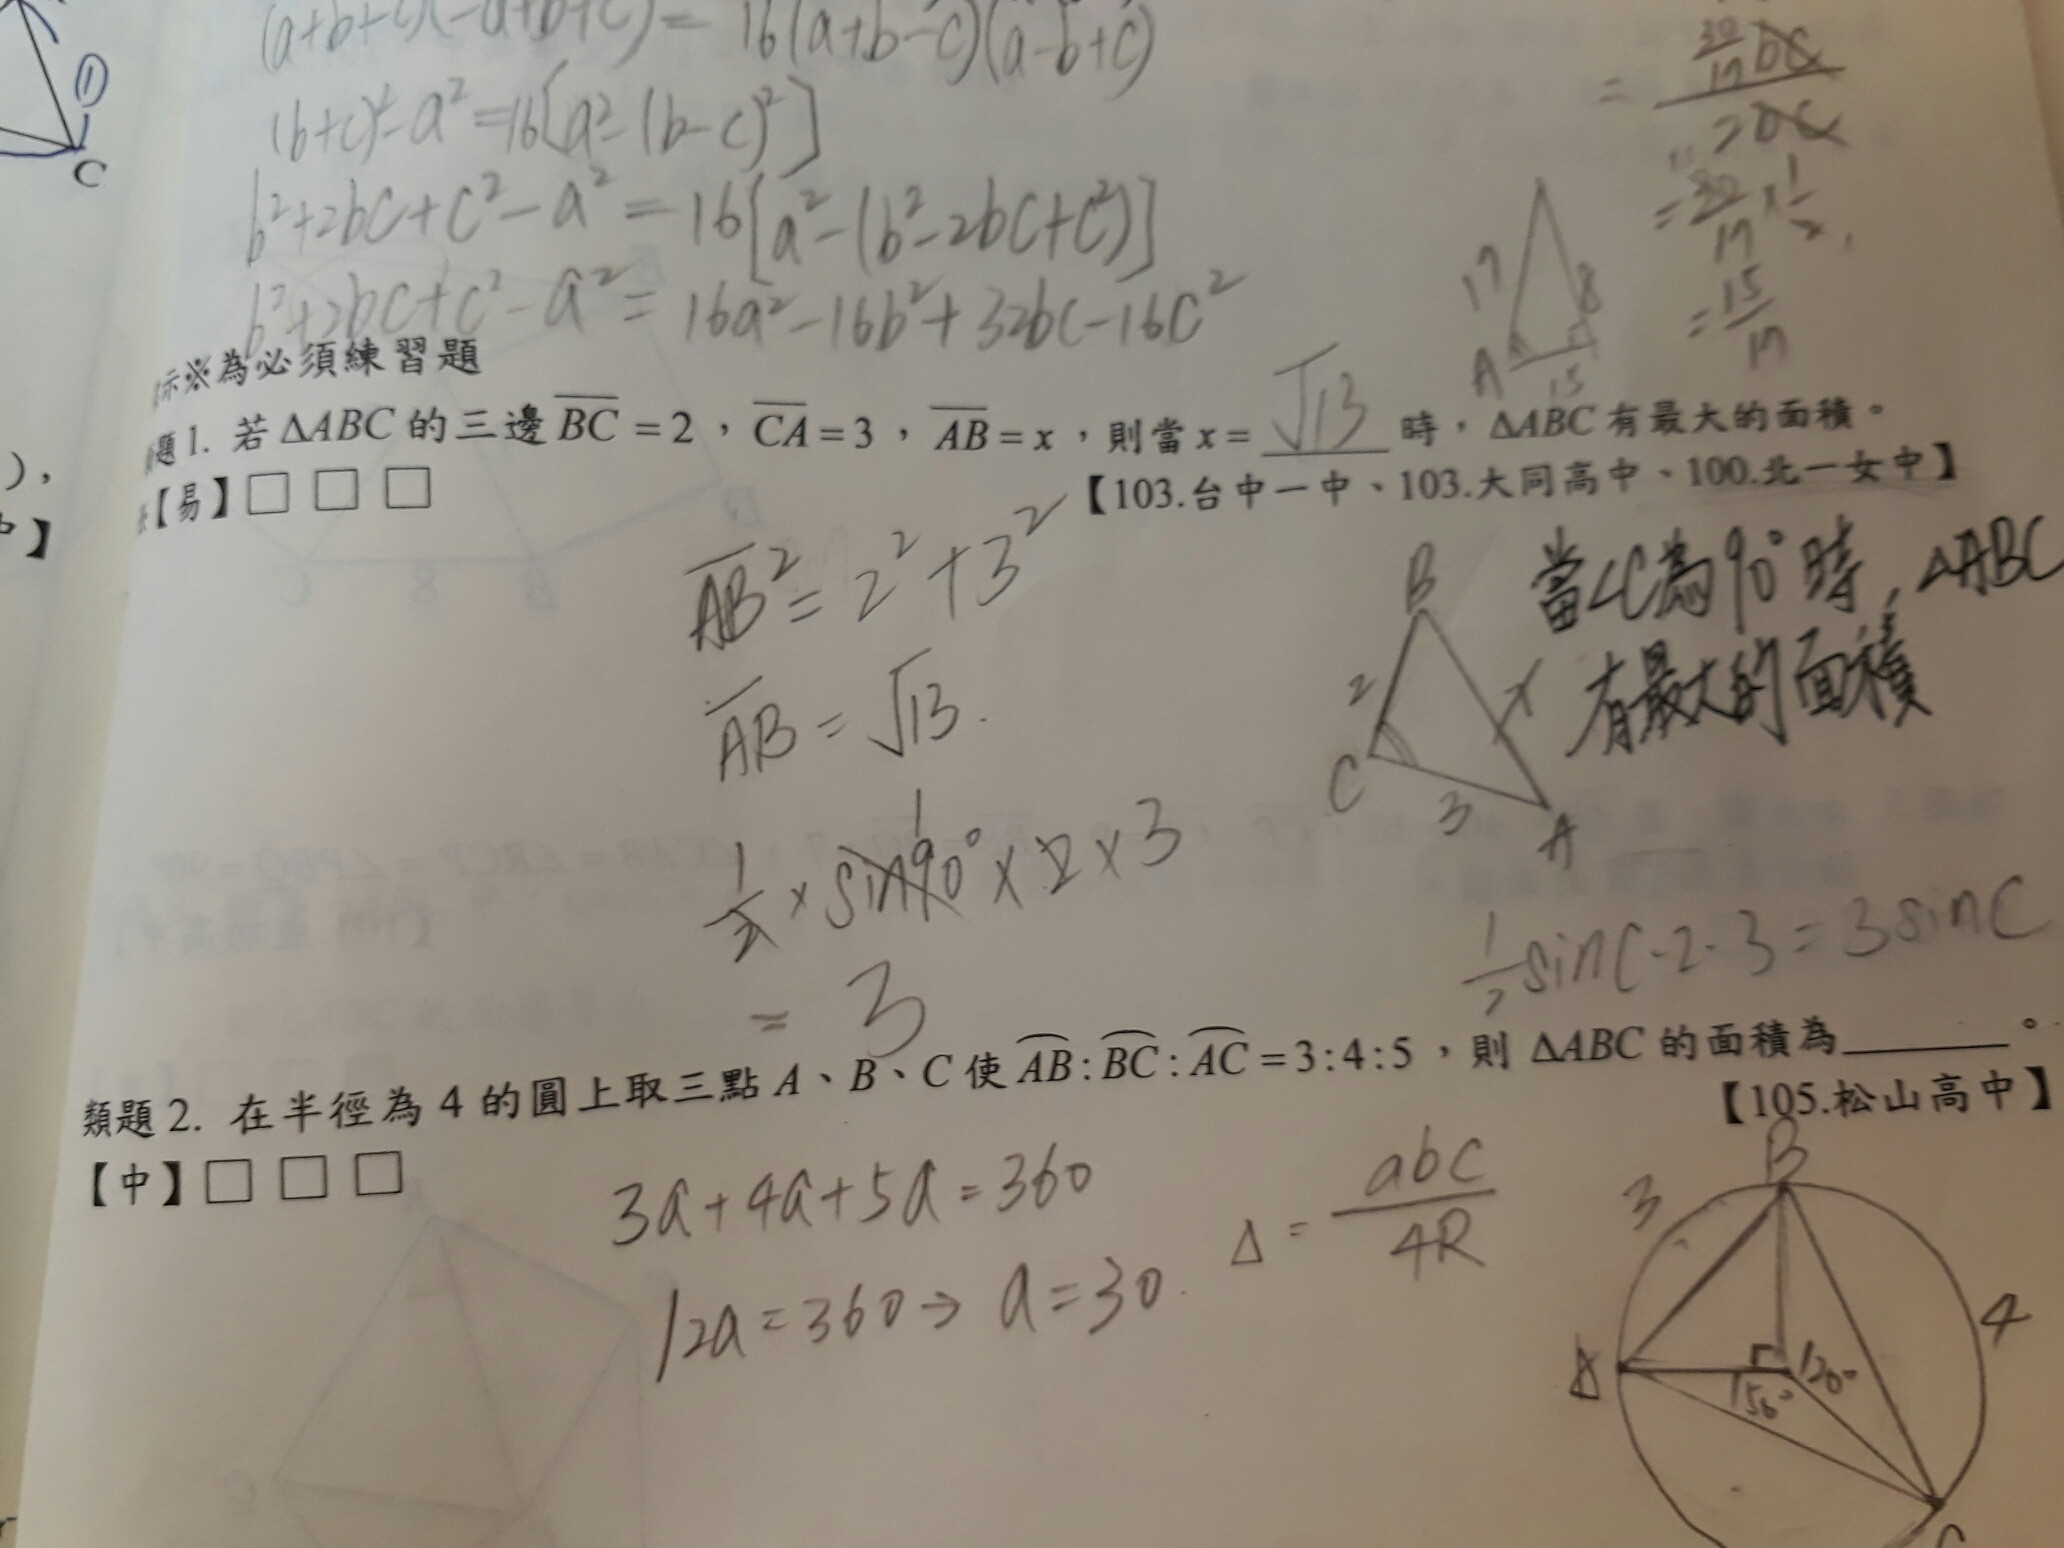 ①
C
(a+b+c)(-a+b+c)=16(a+b-c)(a-b+c)
(b+c)²-a²=16[a²-(b-c)²]
b²+2bc+c²-a²=16[a²-(b²-2bc+c²)]
b²+2bc+c²-a²=16a²-16b²+32bc-16c²
=\frac{\frac{30}{17}bc}{2bc}
=\frac{30}{17}×\frac{1}{2}
=\frac{15}{17}
17
8
A
15
示※為必須練習題
題1. 若 ΔABC 的三邊 \overline{BC}=2，\overline{CA}=3，\overline{AB}=x，則當 x=√13 時，ΔABC 有最大的面積。
【易】□ □ □
【103.台中一中、103.大同高中、100.北一女中】
\overline{AB}²=2²+3²
\overline{AB}=√13.
\frac{1}{2}×sin90°×2×3
1
=3
B
2
x
C
3
A
當∠C為90°時，△ABC
有最大的面積
\frac{1}{2}sinC·2·3=3sinC
類題2. 在半徑為 4 的圓上取三點 A、B、C 使 \overset{⌢}{AB}:\overset{⌢}{BC}:\overset{⌢}{AC}=3:4:5，則 ΔABC 的面積為______。
【105.松山高中】
【中】□ □ □
3a+4a+5a=360
12a=360→a=30.
Δ=\frac{abc}{4R}
B
3
4
A
120°
150°
C